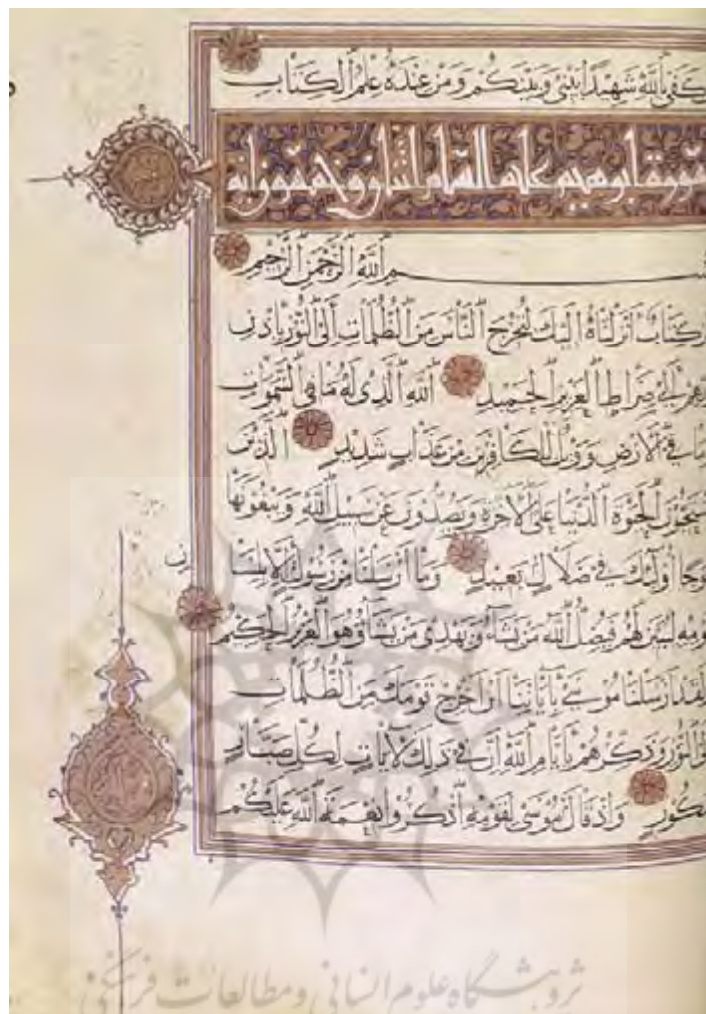 كَفَى بِاللَّهِ شَهِيدًا بَيْنِي وَبَيْنَكُمْ وَمَنْ عِنْدَهُ عِلْمُ الْكِتَابِ
سورة ابرهيم عليه السلام اثنان وخمسون اية
بِسْمِ اللَّهِ الرَّحْمَنِ الرَّحِيمِ
كِتَابٌ أَنْزَلْنَاهُ إِلَيْكَ لِتُخْرِجَ النَّاسَ مِنَ الظُّلُمَاتِ إِلَى النُّورِ بِإِذْنِ
رَبِّهِمْ إِلَى صِرَاطِ الْعَزِيزِ الْحَمِيدِ اللَّهِ الَّذِي لَهُ مَا فِي السَّمَوَاتِ
وَمَا فِي الْأَرْضِ وَوَيْلٌ لِلْكَافِرِينَ مِنْ عَذَابٍ شَدِيدٍ الَّذِينَ
يَسْتَحِبُّونَ الْحَيَوةَ الدُّنْيَا عَلَى الْآخِرَةِ وَيَصُدُّونَ عَنْ سَبِيلِ اللَّهِ وَيَبْغُونَهَا
عِوَجًا أُولَئِكَ فِي ضَلَالٍ بَعِيدٍ وَمَا أَرْسَلْنَا مِنْ رَسُولٍ إِلَّا بِلِسَانِ
قَوْمِهِ لِيُبَيِّنَ لَهُمْ فَيُضِلُّ اللَّهُ مَنْ يَشَاءُ وَيَهْدِي مَنْ يَشَاءُ وَهُوَ الْعَزِيزُ الْحَكِيمُ
وَلَقَدْ أَرْسَلْنَا مُوسَى بِآيَاتِنَا أَنْ أَخْرِجْ قَوْمَكَ مِنَ الظُّلُمَاتِ
إِلَى النُّورِ وَذَكِّرْهُمْ بِأَيَّامِ اللَّهِ إِنَّ فِي ذَلِكَ لَآيَاتٍ لِكُلِّ صَبَّارٍ
شَكُورٍ وَإِذْ قَالَ مُوسَى لِقَوْمِهِ اذْكُرُوا نِعْمَةَ اللَّهِ عَلَيْكُمْ
پژوهشگاه علوم انسانی و مطالعات فرهنگی